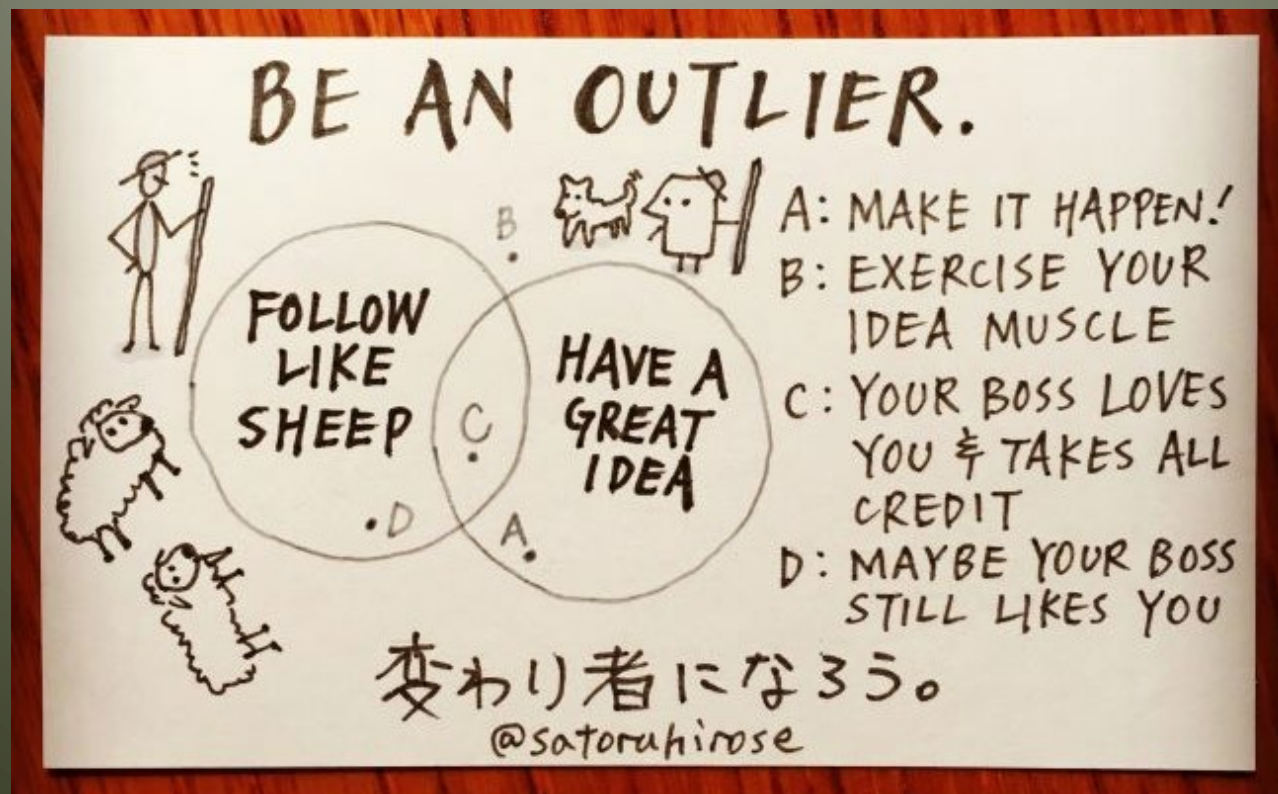 BE AN OUTLIER.
B
FOLLOW
LIKE
SHEEP
HAVE A
GREAT
IDEA
C
D
A
A: MAKE IT HAPPEN!
B: EXERCISE YOUR
IDEA MUSCLE
C: YOUR BOSS LOVES
YOU & TAKES ALL
CREDIT
D: MAYBE YOUR BOSS
STILL LIKES YOU
変わり者になろう。
@satoruhirose